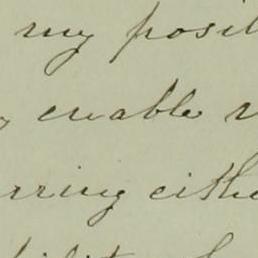 my posit
enable
rring eithe